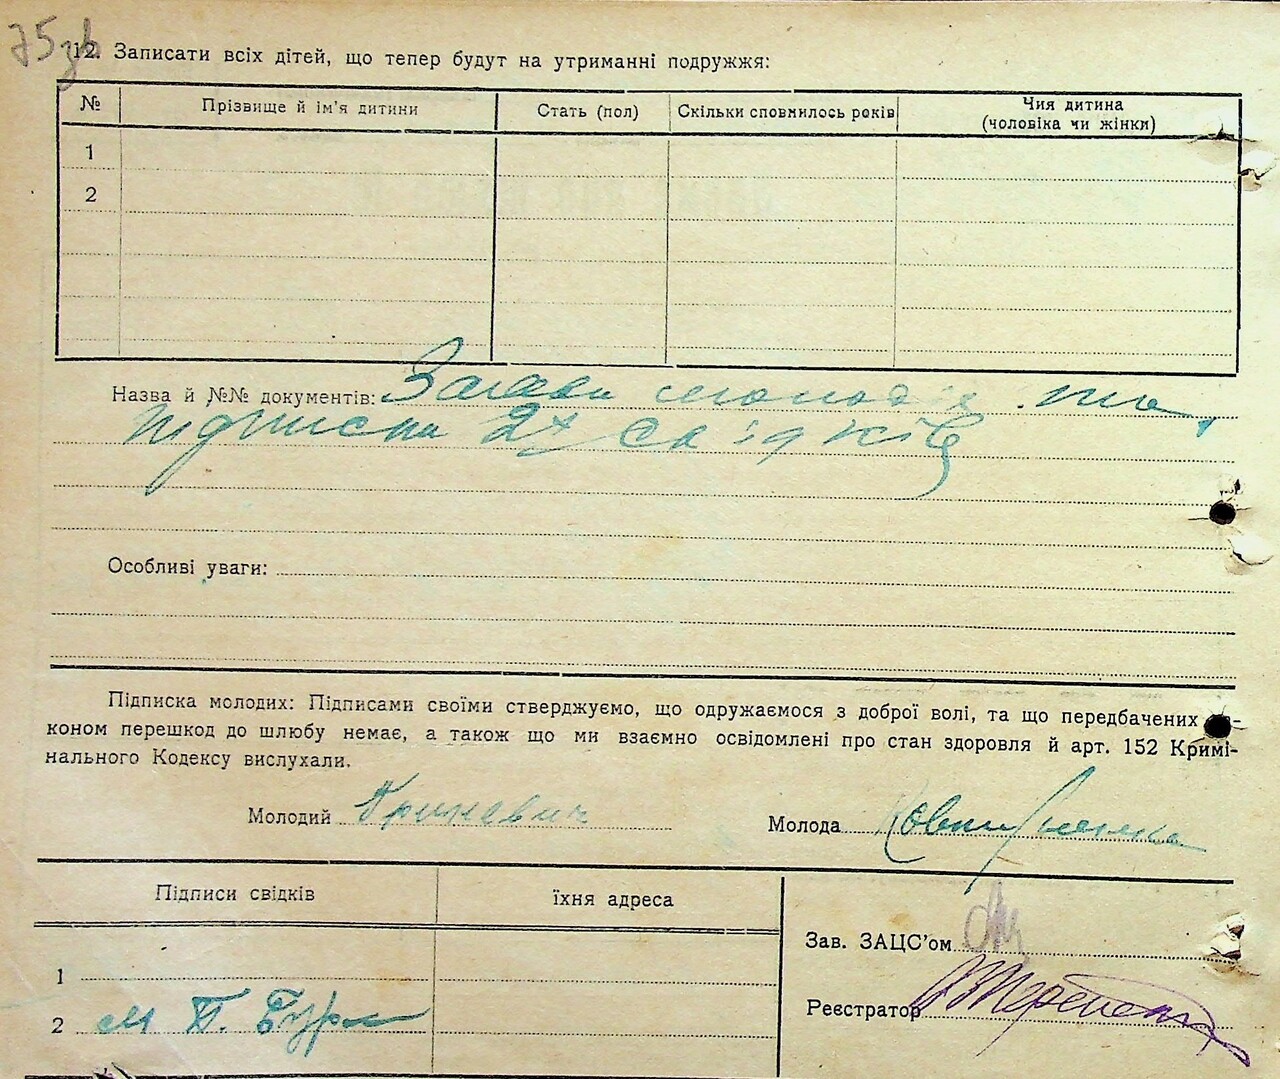 75зв
12. Записати всіх дітей, що тепер будут на утриманні подружжя:
№ Прізвище й ім'я дитини Стать (пол) Скільки сповнилось років Чия дитина (чоловіка чи жінки)
1
2
Назва й №№ документів: Заяви молодіх та
підписки 2х свідків
Особливі уваги:
Підписка молодих: Підписами своїми стверджуємо, що одружаємося з доброї волі, та що передбачених
коном перешкод до шлюбу немає, а також що ми взаємно освідомлені про стан здоровля й арт. 152 Кримі-
нального Кодексу вислухали.
Молодий Гриневич Молода
Підписи свідків їхня адреса
Зав. ЗАЦС'ом
1
Реєстратор
2